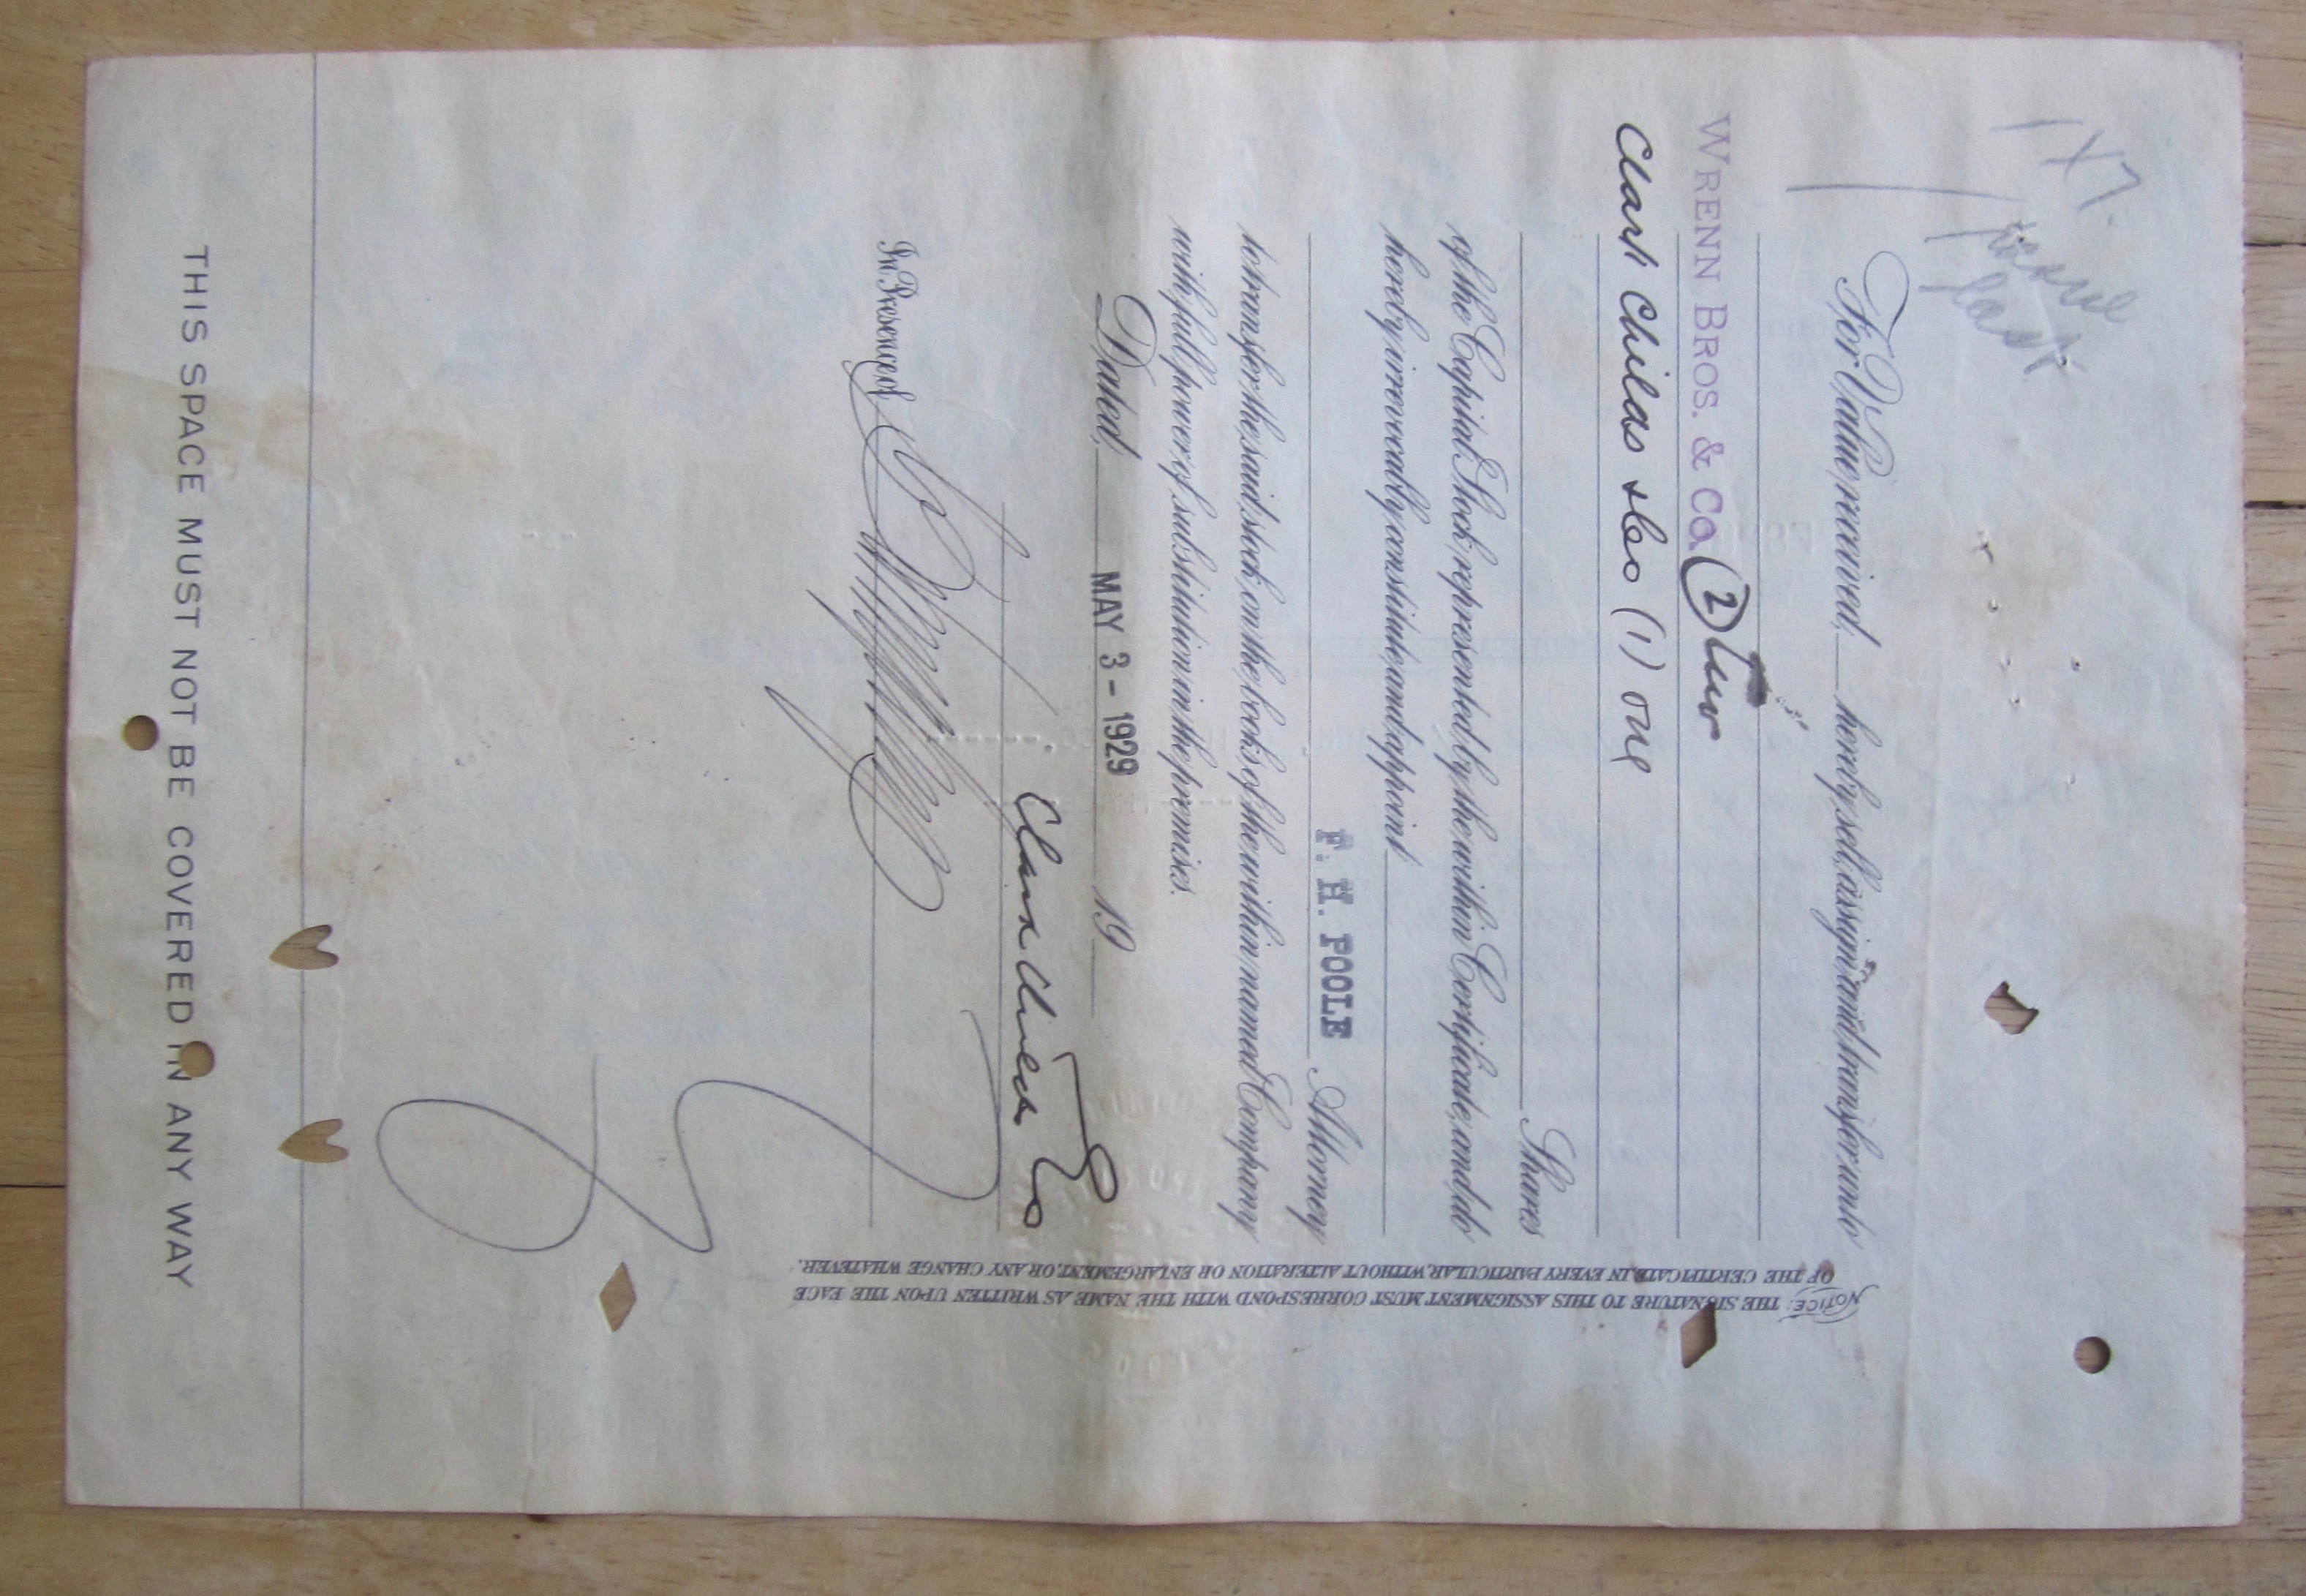 1 X 1.
For Value received, hereby sell, assign and transfer unto
WRENN BROS. & Co (2) Two
Clark Childs & Co (1) one
Shares
of the Capital Stock represented by the within Certificate, and do
hereby irrevocably constitute and appoint
F. H. POOLE Attorney
to transfer the said stock on the books of the within named Company
with full power of substitution in the premises.
Dated, MAY 3 - 1929 19
Clark Childs & Co
In Presence of
THIS SPACE MUST NOT BE COVERED IN ANY WAY
NOTICE: THE SIGNATURE TO THIS ASSIGNMENT MUST CORRESPOND WITH THE NAME AS WRITTEN UPON THE FACE
OF THE CERTIFICATE IN EVERY PARTICULAR, WITHOUT ALTERATION OR ENLARGEMENT, OR ANY CHANGE WHATEVER.